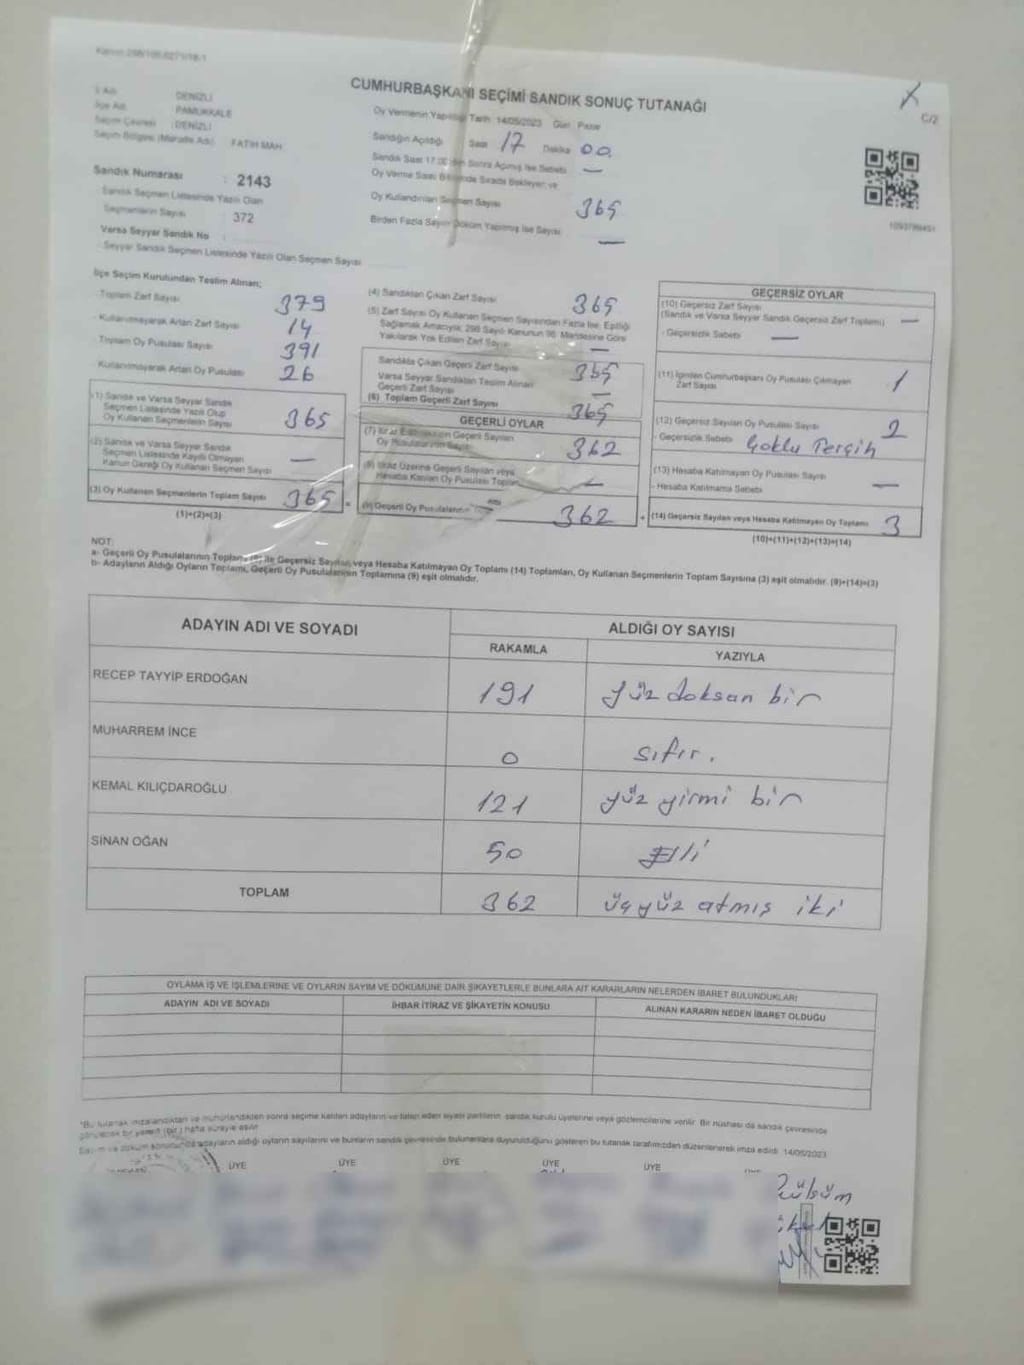 CUMHURBAŞKANI SEÇİMİ SANDIK SONUÇ TUTANAĞI
C/2
İl Adı DENİZLİ
İlçe Adı PAMUKKALE
Seçim Çevresi : DENİZLİ
Seçim Bölgesi (Mahalle Adı) FATİH MAH
Sandık Numarası : 2143
Sandık Seçmen Listesinde Yazılı Olan
Seçmenlerin Sayısı 372
Varsa Seyyar Sandık No
Seyyar Sandık Seçmen Listesinde Yazılı Olan Seçmen Sayısı
Oy Vermenin Yapıldığı Tarih 14/05/2023 Gün Pazar
Sandığın Açıldığı Saat 17 Dakika 00
Sandık Saat 17.00'den Sonra Açılmış İse Sebebi —
Oy Verme Saati Bitiminde Sırada Bekleyen ve
Oy Kullandırılan Seçmen Sayısı 365
Birden Fazla Sayım Döküm Yapılmış İse Sayısı —
İlçe Seçim Kurulundan Teslim Alınan;
Toplam Zarf Sayısı 379
Kullanılmayarak Artan Zarf Sayısı 14
Toplam Oy Pusulası Sayısı 391
Kullanılmayarak Artan Oy Pusulası 26
(1) Sandık ve Varsa Seyyar Sandık
Seçmen Listesinde Yazılı Olup
Oy Kullanan Seçmenlerin Sayısı 365
(2) Sandık ve Varsa Seyyar Sandık
Seçmen Listesinde Kayıtlı Olmayan
Kanun Gereği Oy Kullanan Seçmen Sayısı —
(3) Oy Kullanan Seçmenlerin Toplam Sayısı 365
(1)+(2)=(3)
(4) Sandıktan Çıkan Zarf Sayısı 365
(5) Zarf Sayısı Oy Kullanan Seçmen Sayısından Fazla İse, Eşitliği
Sağlamak Amacıyla, 298 Sayılı Kanunun 98. Maddesine Göre
Yakılarak Yok Edilen Zarf Sayısı —
Sandıkta Çıkan Geçerli Zarf Sayısı 365
Varsa Seyyar Sandıktan Teslim Alınan
Geçerli Zarf Sayısı —
(6) Toplam Geçerli Zarf Sayısı 365
GEÇERLİ OYLAR
(7) İtiraz Edilmeksizin Geçerli Sayılan
Oy Pusulalarının Sayısı 362
(8) İtiraz Üzerine Geçerli Sayılan veya
Hesaba Katılan Oy Pusulası Toplamı —
(9) Geçerli Oy Pusulalarının 362
GEÇERSİZ OYLAR
(10) Geçersiz Zarf Sayısı
(Sandık ve Varsa Seyyar Sandık Geçersiz Zarf Toplamı) —
- Geçersizlik Sebebi —
(11) İçinden Cumhurbaşkanı Oy Pusulası Çıkmayan
Zarf Sayısı 1
(12) Geçersiz Sayılan Oy Pusulası Sayısı 2
- Geçersizlik Sebebi Çoklu Tercih
(13) Hesaba Katılmayan Oy Pusulası Sayısı —
- Hesaba Katılmama Sebebi
(14) Geçersiz Sayılan veya Hesaba Katılmayan Oy Toplamı 3
(10)+(11)+(12)+(13)=(14)
NOT:
a- Geçerli Oy Pusulalarının Toplamı (9) ile Geçersiz Sayılan veya Hesaba Katılmayan Oy Toplamı (14) Toplamları, Oy Kullanan Seçmenlerin Toplam Sayısına (3) eşit olmalıdır. (9)+(14)=(3)
b- Adayların Aldığı Oyların Toplamı, Geçerli Oy Pusulalarının Toplamına (9) eşit olmalıdır.
ADAYIN ADI VE SOYADI ALDIĞI OY SAYISI
RAKAMLA YAZIYLA
RECEP TAYYİP ERDOĞAN 191 yüz doksan bir
MUHARREM İNCE 0 sıfır.
KEMAL KILIÇDAROĞLU 121 yüz yirmi bir
SİNAN OĞAN 50 Elli
TOPLAM 362 üçyüz atmış iki
OYLAMA İŞ VE İŞLEMLERİNE VE OYLARIN SAYIM VE DÖKÜMÜNE DAİR ŞİKAYETLERLE BUNLARA AİT KARARLARIN NELERDEN İBARET BULUNDUKLARI
ADAYIN ADI VE SOYADI İHBAR İTİRAZ VE ŞİKAYETİN KONUSU ALINAN KARARIN NEDEN İBARET OLDUĞU
*Bu tutanak imzalandıktan ve mühürlendikten sonra seçime katılan adayların ve talep eden siyasi partilerin sandık kurulu üyelerine veya gözlemcilerine verilir. Bir nüshası da sandık çevresinde
görülecek bir yere (1) hafta süreyle asılır
Sayım ve döküm sonucunda adayların aldığı oyların sayılarını ve bunların sandık çevresinde bulunanlara duyurulduğunu gösteren bu tutanak tarafımızdan düzenlenerek imza edildi. 14/05/2023
ÜYE ÜYE ÜYE ÜYE ÜYE